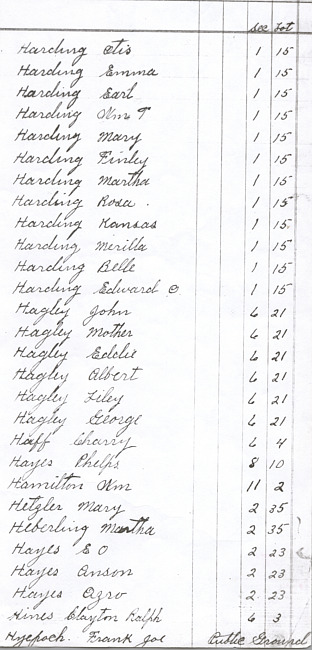 Sec Lot
Harding Otis 1 15
Harding Emma 1 15
Harding Earl 1 15
Harding Wm T 1 15
Harding Mary 1 15
Harding Finley 1 15
Harding Martha 1 15
Harding Rosa . 1 15
Harding Kansas 1 15
Harding Merilla 1 15
Harding Belle 1 15
Harding Edward O 1 15
Hagley John 6 21
Hagley Mother 6 21
Hagley Eddie 6 21
Hagley Albert 6 21
Hagley Liley 6 21
Hagley George 6 21
Haff Charry 6 4
Hayes Phelps 8 10
Hamilton Wm 11 2
Hetzler Mary 2 35
Heberling Martha 2 35
Hayes E O 2 23
Hayes Anson 2 23
Hayes Azro 2 23
Hines Clayton Ralph 6 3
Frank Joe Public Ground